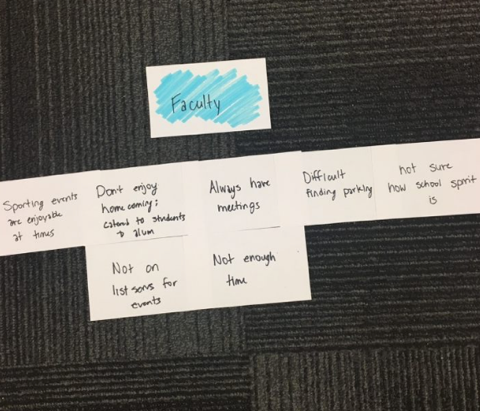 Faculty
Sporting events
are enjoyable
at times
Don't enjoy
homecoming;
catered to students
+ alum
Always have
meetings
Difficult
finding parking
not sure
how school spirit
is
Not on
list servs for
events
Not enough
time